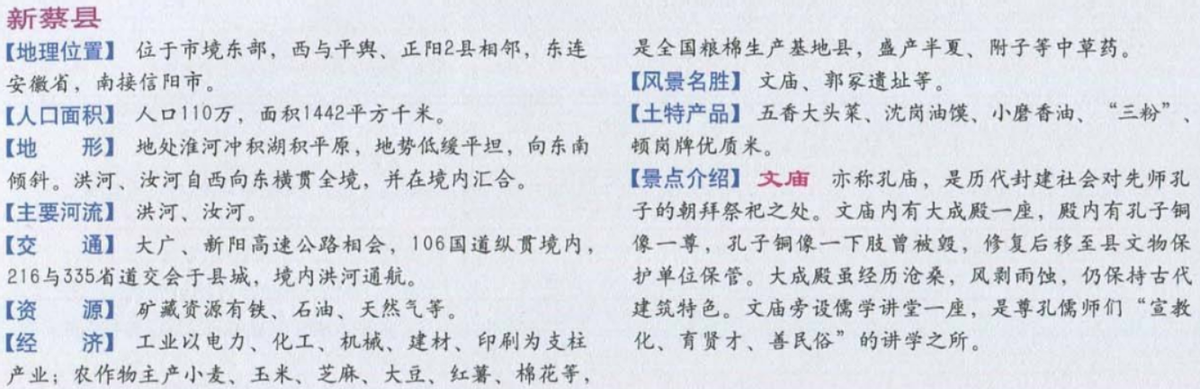 新蔡县
【地理位置】 位于市境东部，西与平舆、正阳2县相邻，东连
安徽省，南接信阳市。
【人口面积】 人口110万，面积1442平方千米。
【地 形】 地处淮河冲积湖积平原，地势低缓平坦，向东南
倾斜。洪河、汝河自西向东横贯全境，并在境内汇合。
【主要河流】 洪河、汝河。
【交 通】 大广、新阳高速公路相会，106国道纵贯境内，
216与335省道交会于县城，境内洪河通航。
【资 源】 矿藏资源有铁、石油、天然气等。
【经 济】 工业以电力、化工、机械、建材、印刷为支柱
产业；农作物主产小麦、玉米、芝麻、大豆、红薯、棉花等，
是全国粮棉生产基地县，盛产半夏、附子等中草药。
【风景名胜】 文庙、郭冢遗址等。
【土特产品】 五香大头菜、沈岗油馍、小磨香油、“三粉”、
顿岗牌优质米。
【景点介绍】 文庙 亦称孔庙，是历代封建社会对先师孔
子的朝拜祭祀之处。文庙内有大成殿一座，殿内有孔子铜
像一尊，孔子铜像一下肢曾被毁，修复后移至县文物保
护单位保管。大成殿虽经历沧桑，风剥雨蚀，仍保持古代
建筑特色。文庙旁设儒学讲堂一座，是尊孔儒师们“宣教
化、育贤才、善民俗”的讲学之所。